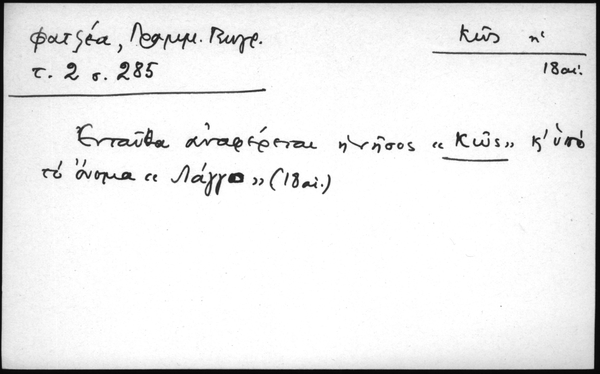 Φατζέα, Γραμμ. Γεωγρ.
τ. 2 σ. 285
Κῶς ἡ
18 αἰ.
Ἐνταῦθα ἀναφέρεται ἡ νῆσος « Κῶς » κ' ὑπὸ
τὸ ὄνομα « Λάγγο » (18 αἰ.)